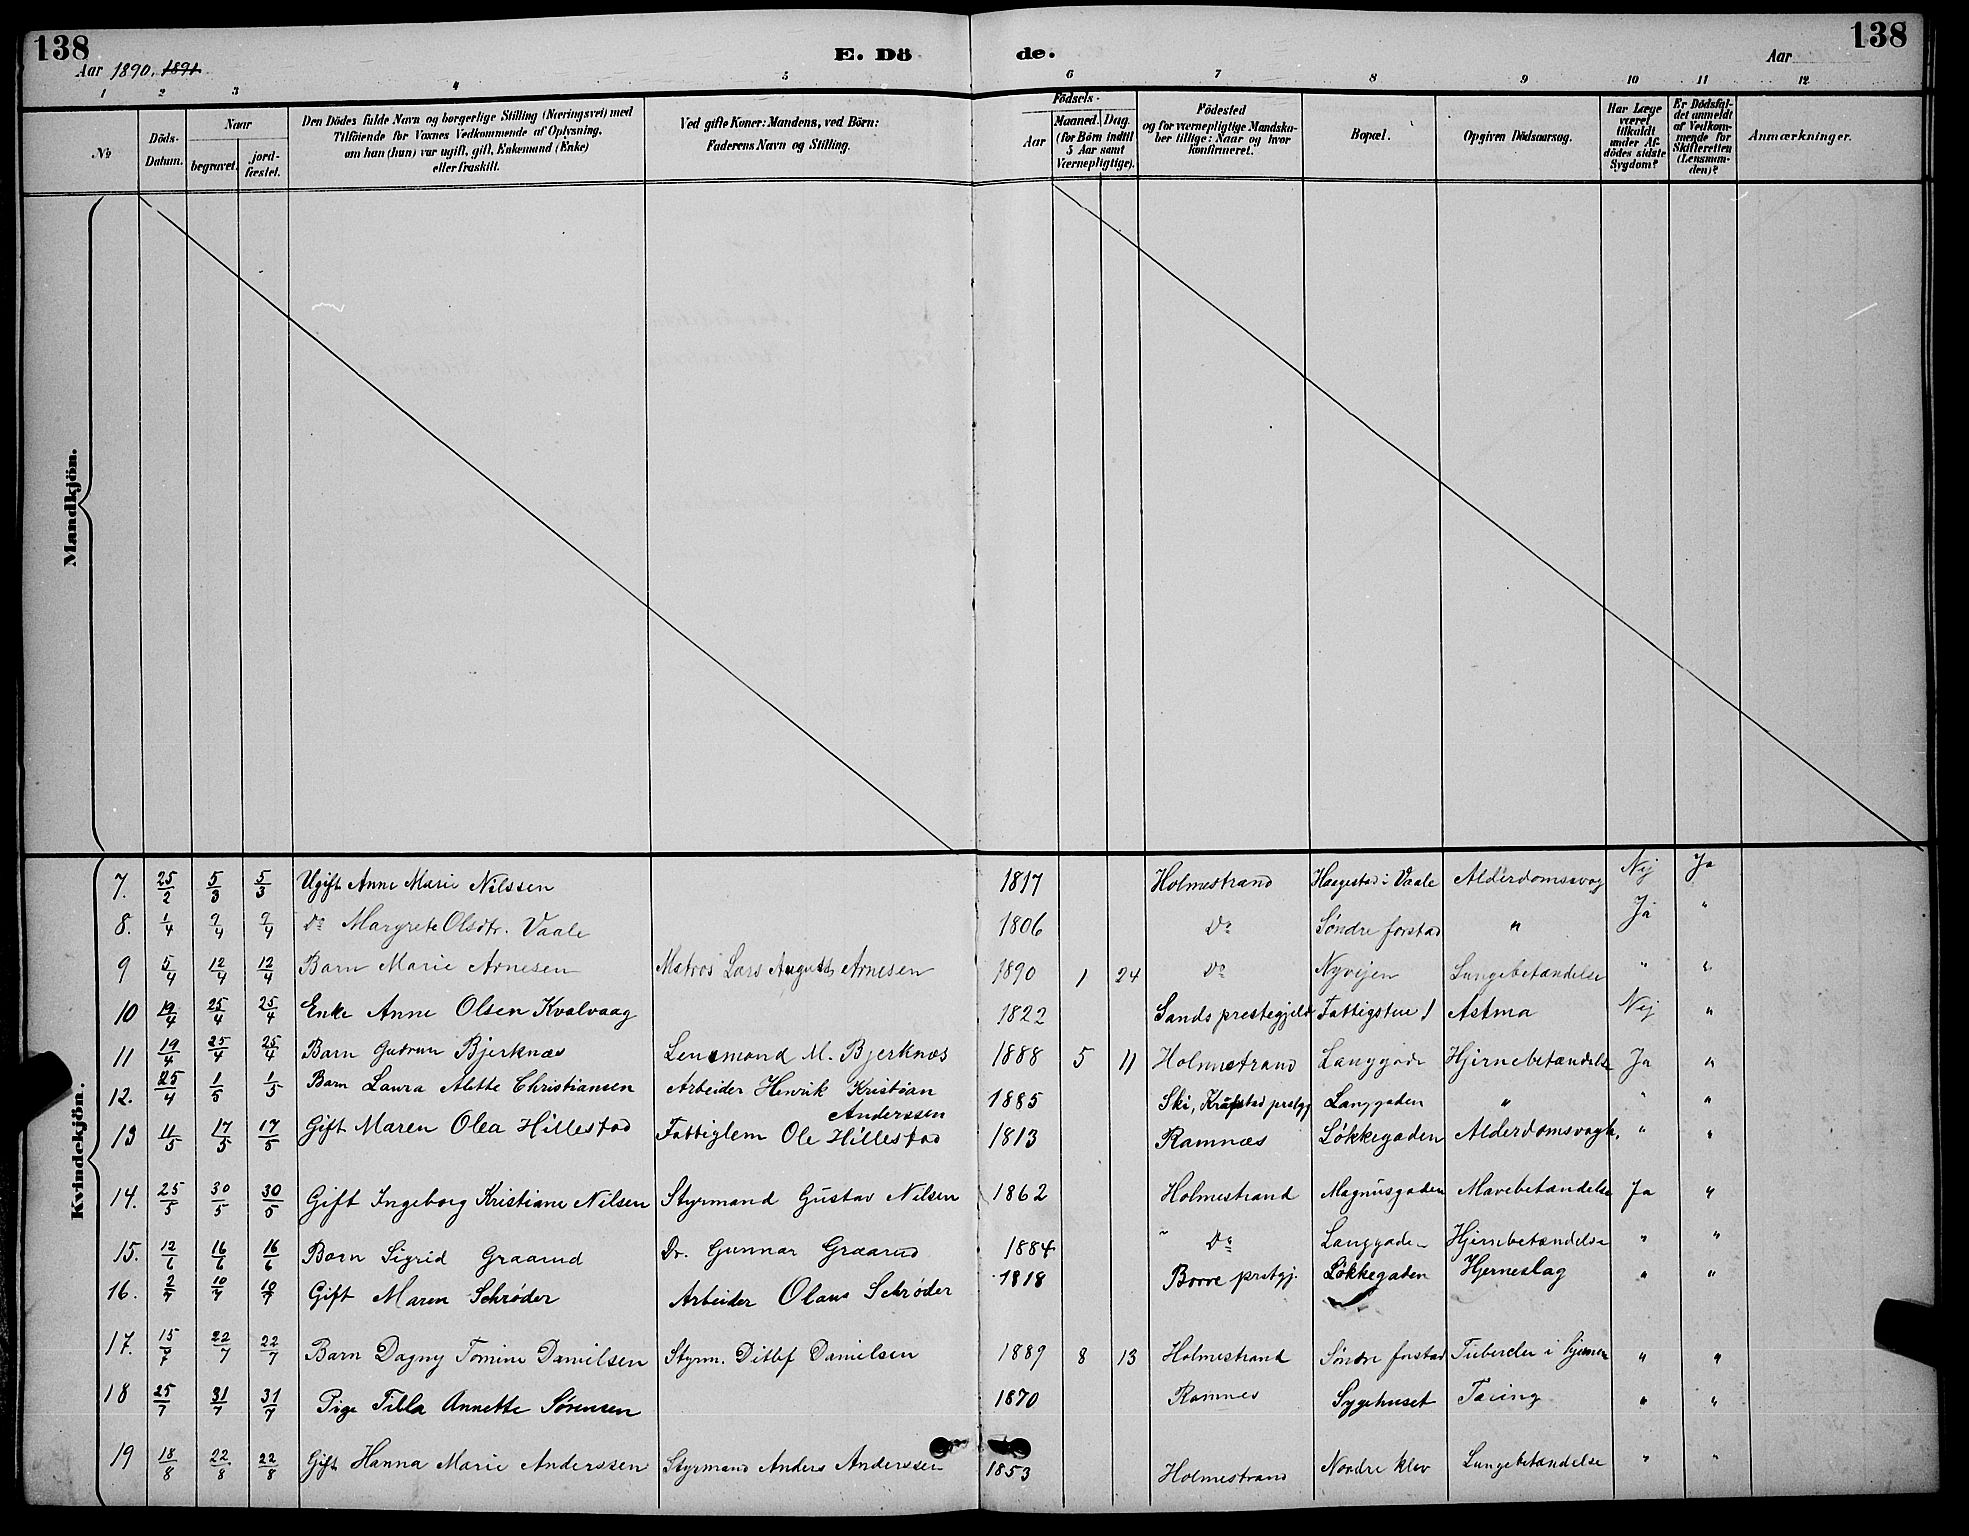 138
E. Dö
de.
138
Aar 1890. 1891.
Aar
1 2 3 4 5 6 7 8 9 10 11 12
№
Döds-Datum.
Naar
begravet.
jord-fæstet.
Den Dödes fulde Navn og borgerlige Stilling (Næringsvei) med
Tilföiende for Voxnes Vedkommende af Oplysning,
om han (hun) var ugift, gift, Enkemand (Enke)
eller fraskilt.
Ved gifte Koner: Mandens, ved Börn:
Faderens Navn og Stilling.
Födsels-
Aar
Maaned. Dag.
(for Börn indtil
5 Aar samt
Værnepligtige).
Födested
og for værnepligtige Mandska-
ber tillige: Naar og hvor
konfirmeret.
Bopæl.
Opgiven Dödsaarsag.
Har Læge
været
tilkaldt
under Af-
dödes sidste
Sygdom?
Er Dödsfal-
det anmeldt
af Vedkom-
mende for
Skifteretten
(Lensman-
den)?
Anmærkninger.
Mandkjön.
Kvindekjön.
7. 25/2 5/3 5/3 Ugift Anne Marie Nilssen 1817 Holmestrand Haegestad i Vaale Alderdomssvag Nej Ja
8. 1/4 7/4 7/4 Do Margrete Olsdtr. Vaale 1806 Do Søndre forstad " Ja "
9 5/4 12/4 12/4 Barn Marie Arnesen Matros Lars August Arnesen 1890 1 24 Do Nyvejen Lungebetændelse " "
10 19/4 25/4 25/4 Enke Anne Olsen Kvalvaag 1822 Sands prestegjeld Fattigstue ! Astma Nej "
11 19/4 25/4 25/4 Barn Gudrun Bjerknæs Lensmand M. Bjerknæs 1888 5 11 Holmestrand Langgade Hjirnebetændelse Ja "
12. 25/4 1/5 1/5 Barn Laura Alette Christiansen Arbeider Henrik Kristian Anderssen 1885 Ski, Kraakstad prstgj Langgaden " " "
13 11/5 17/5 17/5 Gift Maren Olea Hillestad Fattiglem Ole Hillestad 1813 Ramnæs Løkkegaden Alderdomsvagh. " "
14. 25/5 30/5 30/5 Gift Ingeborg Kristiane Nilsen Styrmand Gustav Nilsen 1862 Holmestrand Magnusgaden Mavebetændelse Ja "
15. 12/6 16/6 16/6 Barn Sigrid Graarud Dr. Gunnar Graarud 1884 Do Langgaden Hjirnbetændelse " "
16. 2/7 10/7 10/7 Gift Maren Schrøder Arbeider Olaus Schrøder 1818 Borre prstgj. Løkkegaden Hjerneslag " "
17. 15/7 22/7 22/7 Barn Dagny Tomine Danielsen Styrm. Ditlef Danielsen 1889 8 13 Holmestrand Søndre forstad Tuberder i hjernen " "
18 25/7 31/7 31/7 Pige Tilla Annette Sørensen 1870 Ramnes Sygehuset Tæring " "
19 18/8 22/8 22/8 Gift Hanna Marie Anderssen Styrmand Anders Anderssen 1853 Holmestrand Nordre klev Lungebetændelse " "